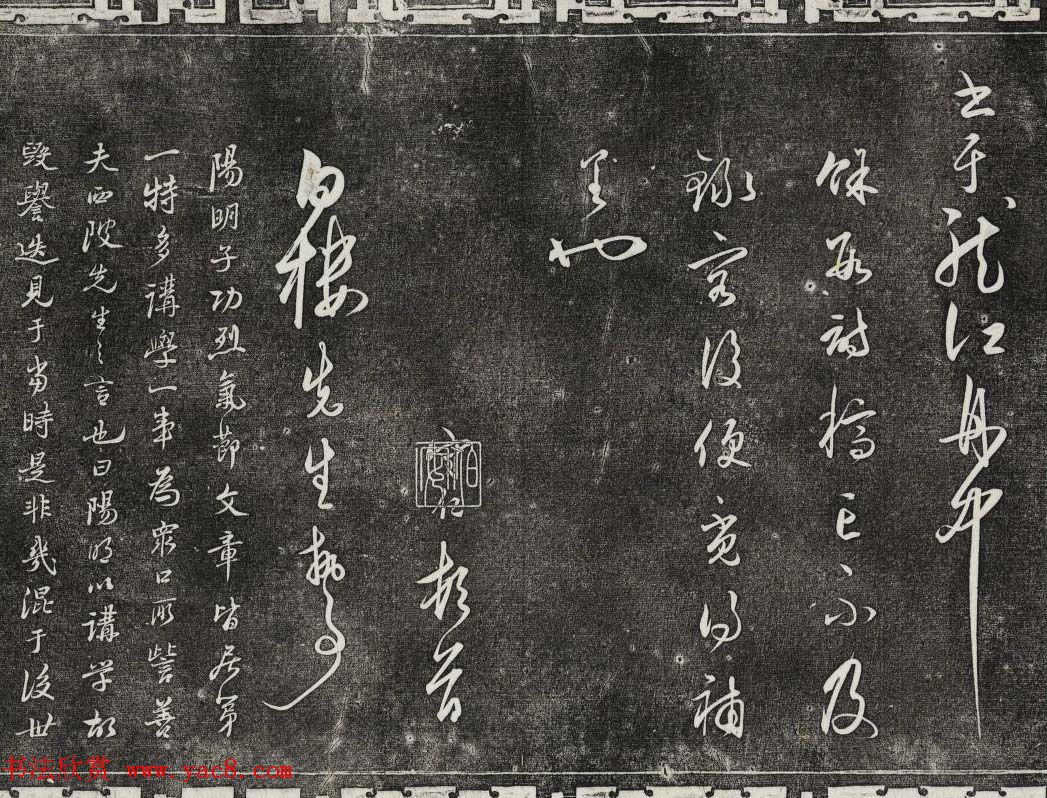 书于龍江舟中
餘數詩稿亡不及
錄容後便覓得補
呈也
守仁頓首
白樓先生執事
陽明子功烈氣節文章皆居第
一特多講學一事為衆口所訾善
夫西陂先生之言也曰陽明以講学故
毀譽迭見于當時是非幾混于後世
书法欣赏 www.yac8.com